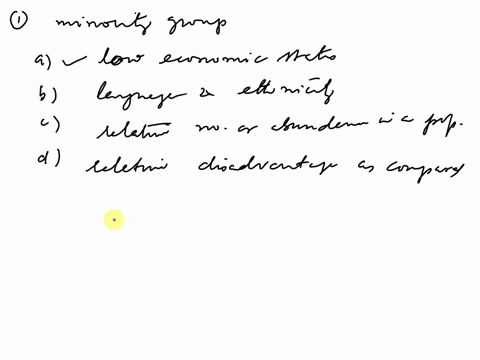 ① minority group
a) ✓ low economic status
b) language & ethnicity
c) relative no. or abundance in a pop.
d) relative disadvantage as compared